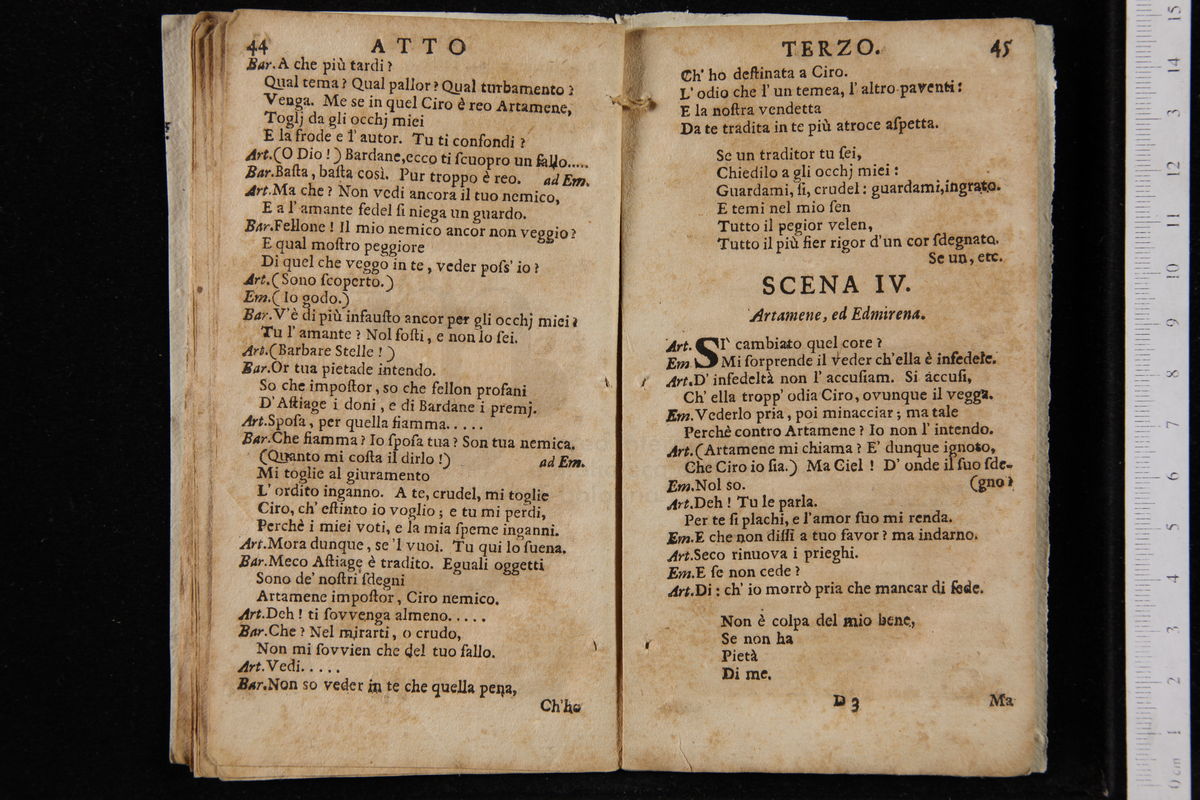 44 ATTO
Bar. A che più tardi?
Qual tema? Qual pallor? Qual turbamento?
Venga. Me se in quel Ciro è reo Artamene,
Toglj da gli occhj miei
E la frode e l'autor. Tu ti confondi?
Art. (O Dio!) Bardane, ecco ti ſcuopro un fallo.....
Bar. Baſta, baſta così. Pur troppo è reo. ad Em.
Art. Ma che? Non vedi ancora il tuo nemico,
E a l'amante fedel ſi niega un guardo.
Bar. Fellone! Il mio nemico ancor non veggio?
E qual moſtro peggiore
Di quel che veggo in te, veder poſs' io?
Art. (Sono ſcoperto.)
Em. (Io godo.)
Bar. V'è di più infauſto ancor per gli occhj miei?
Tu l'amante? Nol foſti, e non lo ſei.
Art. (Barbare Stelle!)
Bar. Or tua pietade intendo.
So che impoſtor, so che fellon profani
D'Aſtiage i doni, e di Bardane i premj.
Art. Spoſa, per quella fiamma.....
Bar. Che fiamma? Io ſpoſa tua? Son tua nemica.
(Quanto mi coſta il dirlo!) ad Em.
Mi toglie al giuramento
L'ordito inganno. A te, crudel, mi toglie
Ciro, ch' eſtinto io voglio; e tu mi perdi,
Perchè i miei voti, e la mia ſpeme inganni.
Art. Mora dunque, se 'l vuoi. Tu qui lo ſuena.
Bar. Meco Aſtiage è tradito. Eguali oggetti
Sono de' noſtri ſdegni
Artamene impoſtor, Ciro nemico.
Art. Deh! ti ſovvenga almeno.....
Bar. Che? Nel mirarti, o crudo,
Non mi ſovvien che del tuo fallo.
Art. Vedi.....
Bar. Non so veder in te che quella pena,
Ch'ho
TERZO. 45
Ch' ho deſtinata a Ciro.
L'odio che l'un temea, l'altro paventi:
E la noſtra vendetta
Da te tradita in te più atroce aſpetta.
Se un traditor tu ſei,
Chiedilo a gli occhj miei:
Guardami, ſi, crudel: guardami, ingrato.
E temi nel mio ſen
Tutto il pegior velen,
Tutto il più fier rigor d'un cor ſdegnato.
Se un, etc.
SCENA IV.
Artamene, ed Edmirena.
Art. SI' cambiato quel core?
Em Mi ſorprende il veder ch'ella è infedele.
Art. D'infedeltà non l'accuſiam. Si accuſi,
Ch' ella tropp' odia Ciro, ovunque il vegga.
Em. Vederlo pria, poi minacciar; ma tale
Perchè contro Artamene? Io non l'intendo.
Art. (Artamene mi chiama? E' dunque ignoto,
Che Ciro io ſia.) Ma Ciel! D'onde il ſuo ſde-
Em. Nol so. (gno?
Art. Deh! Tu le parla.
Per te ſi plachi, e l'amor ſuo mi renda.
Em. E che non diſſi a tuo favor? ma indarno.
Art. Seco rinuova i prieghi.
Em. E ſe non cede?
Art. Di: ch' io morrò pria che mancar di fede.
Non è colpa del mio bene,
Se non ha
Pietà
Di me.
D 3 Ma